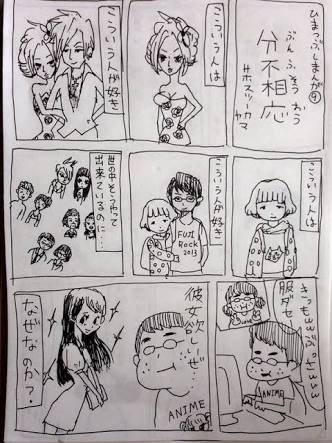 ひまつぶしまんが
ぶんふそうおう
分不相応
こういう人は
こういう人が好き
こういう人は
こういう人が好き
FUJI
Rock
2013
世の中そうやって
出来ているのに…
服ダセ
ANIME
彼女欲しいぜ
ANIME
なぜなのか?